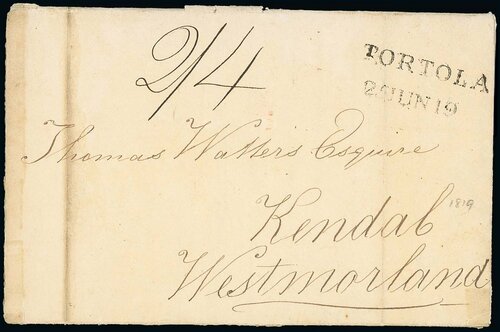 2/4
TORTOLA
2 JUN 19
Thomas Watters Esquire
1819
Kendal
Westmorland